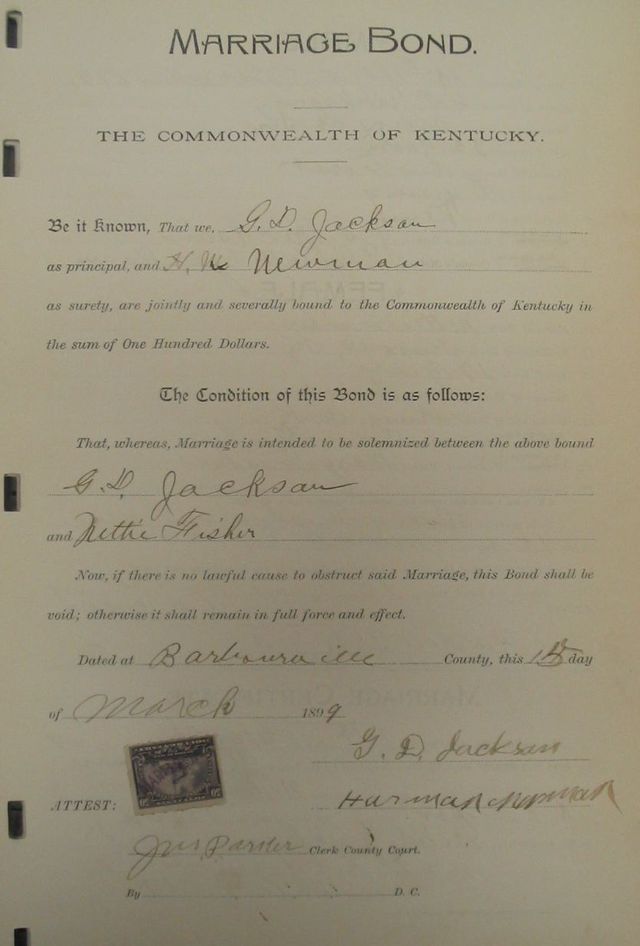 MARRIAGE BOND.
THE COMMONWEALTH OF KENTUCKY.
Be it Known, That we, G. D. Jackson
as principal, and H. Newman
as surety, are jointly and severally bound to the Commonwealth of Kentucky in
the sum of One Hundred Dollars.
The Condition of this Bond is as follows:
That, whereas, Marriage is intended to be solemnized between the above bound
G. D. Jackson
and Nettie Fisher
Now, if there is no lawful cause to obstruct said Marriage, this Bond shall be
void; otherwise it shall remain in full force and effect.
Dated at Barbourville County, this day
of March 1899
G. D. Jackson
ATTEST: Harman Newman
Clerk County Court.
By D. C.